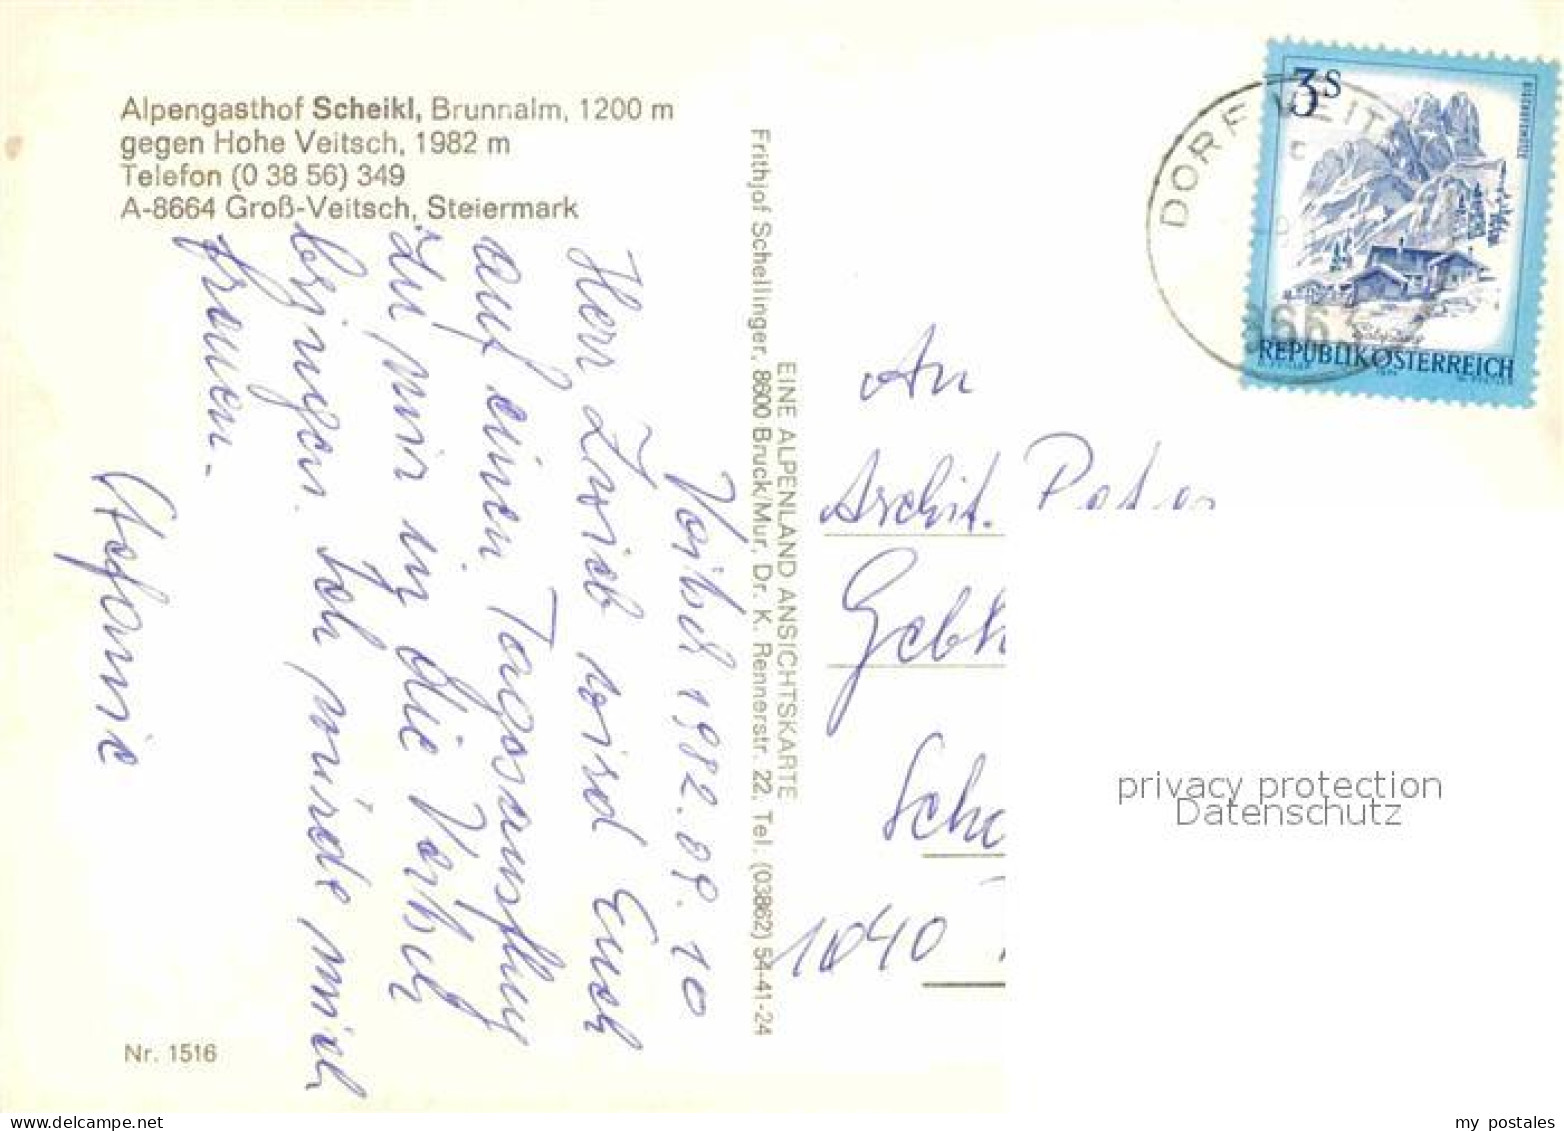 Alpengasthof Scheikl, Brunnalm, 1200 m
gegen Hohe Veitsch, 1982 m
Telefon (0 38 56) 349
A-8664 Groß-Veitsch, Steiermark
Veitsch 1982.09.10
Herr Zwieb wird Euch
auf einen Tagesausflug
zu mir in die Veitsch
bringen. Ich würde mich
freuen.
Stefanie
Nr. 1516
EINE ALPENLAND ANSICHTSKARTE
Frithjof Schellinger, 8600 Bruck/Mur, Dr. K. Rennerstr. 22, Tel. (03862) 54-41-24
DORF VEIT
3S
REPUBLIK ÖSTERREICH
An
Archit. Peter
Gebh
Sche
1040
privacy protection
Datenschutz
my postales